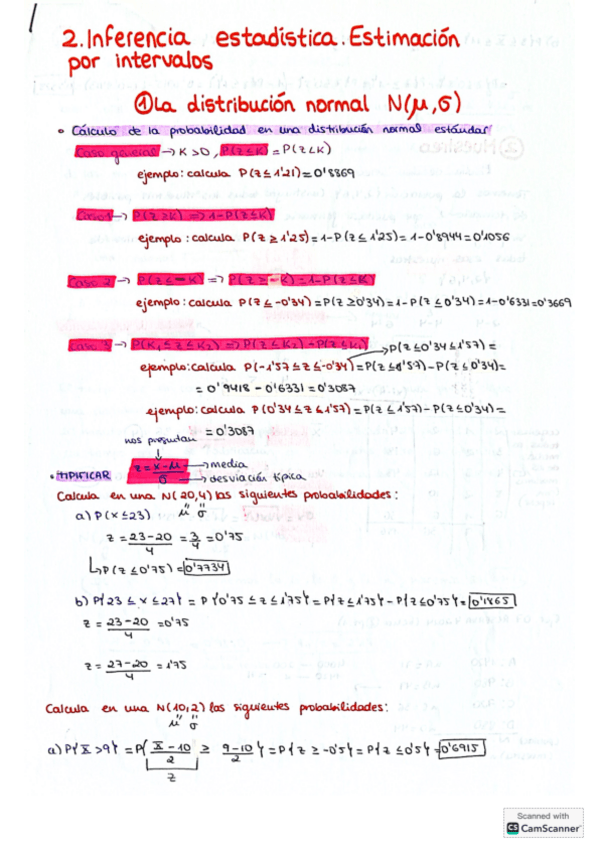 2. Inferencia estadística. Estimación
por intervalos
① La distribución normal N(μ,σ)
• Cálculo de la probabilidad en una distribución normal estándar
Caso general → K>0, P(Z≤K) = P(Z<K)
ejemplo: calcula P(Z≤1'21) = 0'8869
Caso 1 → P(Z≥K) => 1-P(Z≤K)
ejemplo: calcula P(Z≥1'25) = 1-P(Z≤1'25) = 1-0'8944 = 0'1056
Caso 2 → P(Z≤-K) => P(Z≥-K) = 1-P(Z≤K)
ejemplo: calcula P(Z≤-0'34) = P(Z≥0'34) = 1-P(Z≤0'34) = 1-0'6331 = 0'3669
Caso 3 → P(K₁≤Z≤K₂) => P(Z≤K₂) - P(Z≤K₁)
→ P(Z≤0'34≤1'57) =
ejemplo: calcula P(-1'57≤Z≤-0'34) = P(Z≤1'57) - P(Z≤0'34) =
= 0'9418 - 0'6331 = 0'3087
ejemplo: calcula P(0'34≤Z≤1'57) = P(Z≤1'57) - P(Z≤0'34) =
= 0'3087
nos preguntan
• TIPIFICAR z = x-μ/σ → media
→ desviación típica
Calcula en una N(20,4) las siguientes probabilidades:
μ σ
a) P(x≤23)
z = 23-20/4 = 3/4 = 0'75
↳ P(Z≤0'75) = 0'7734
b) P{23≤x≤27} = P{0'75≤z≤1'75} = P{z≤1'75} - P{z≤0'75} = 0'1865
z = 23-20/4 = 0'75
z = 27-20/4 = 1'75
Calcula en una N(10,2) las siguientes probabilidades:
μ σ
a) P{X>9} = P{X-10/2 ≥ 9-10/2} = P{z≥-0'5} = P{z≤0'5} = 0'6915
z
Scanned with
CS CamScanner